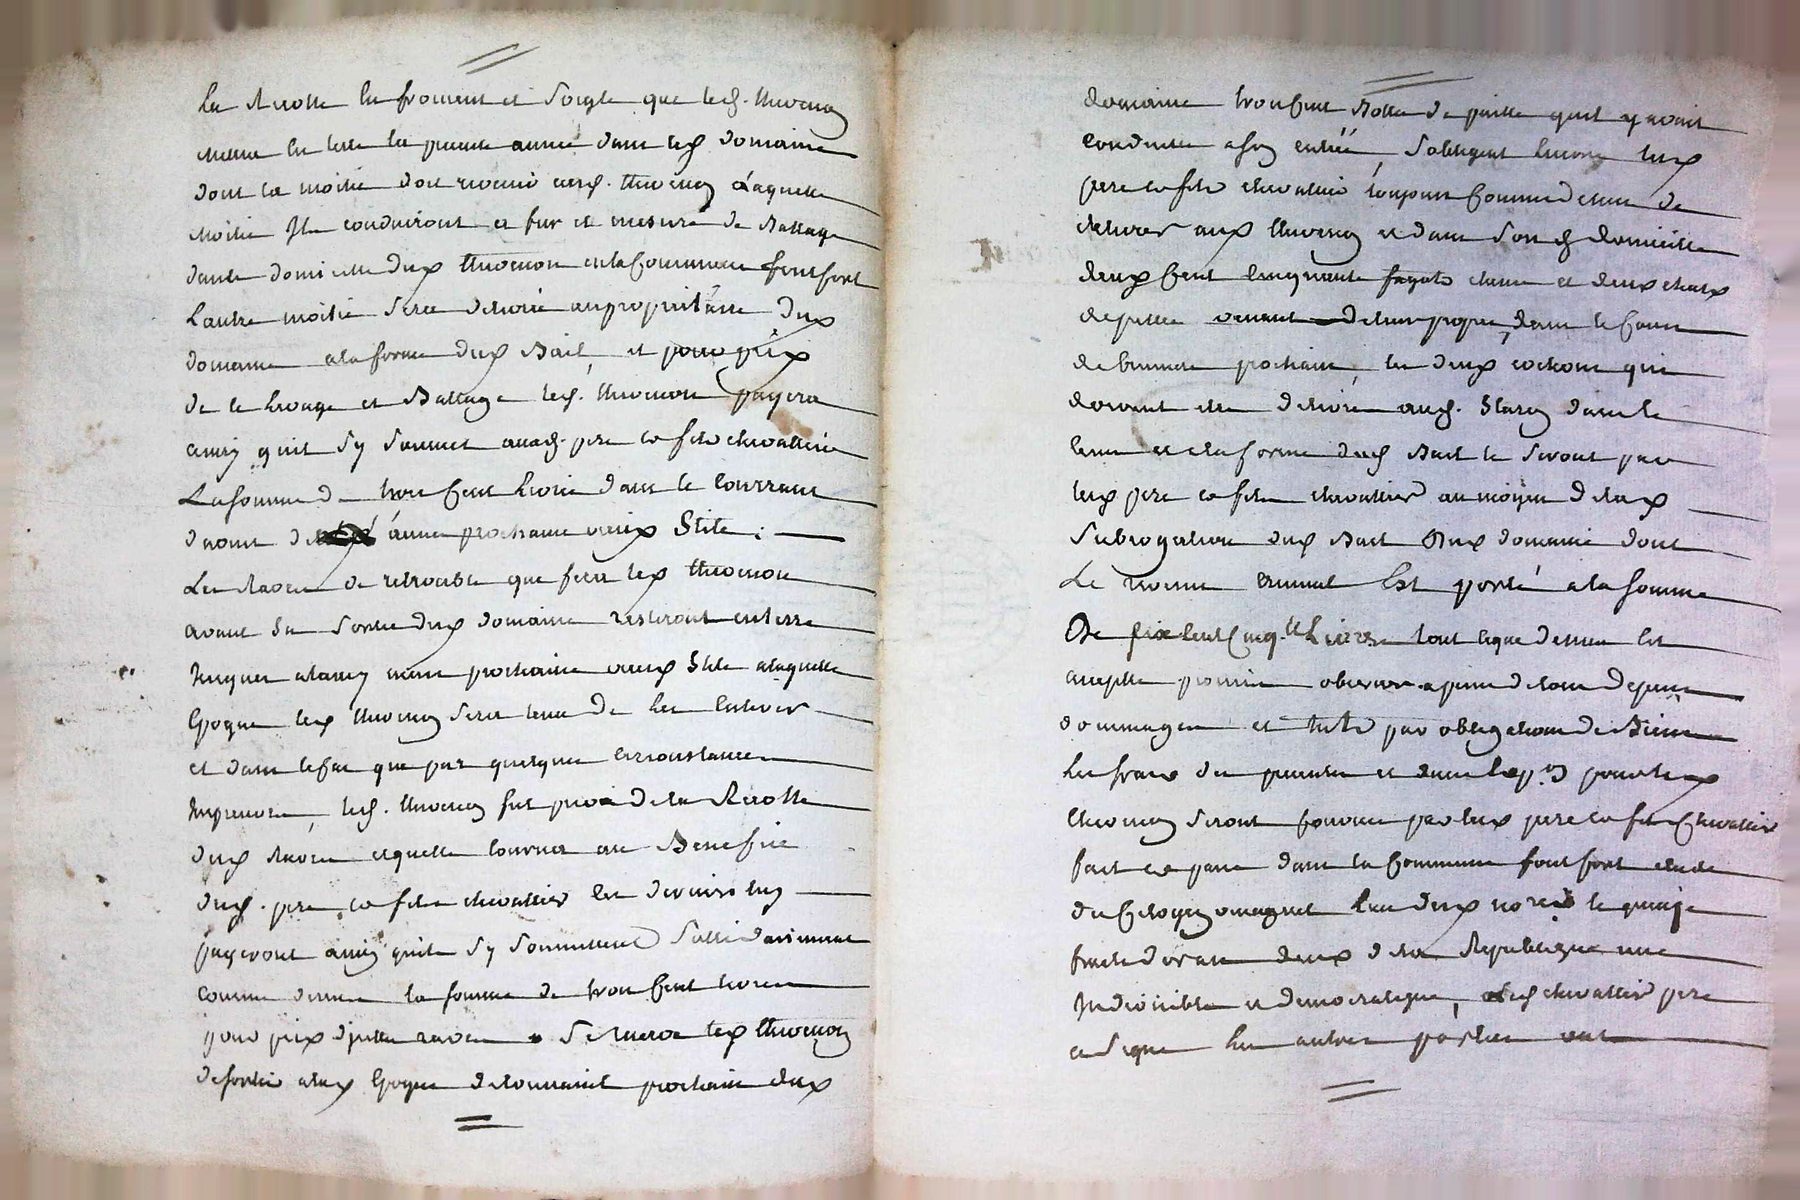 La Recolte en froment et Soigle que led. thevenon
mettra en terre la presente année dans led domaine
dont la moitié doit revenir aud. thevenon Laquelle
moitié Ils conduiront a fur et mesure de Battage
dans le domicille dud thevenon en la Commune fontfort
Lautre moitié Sera delivré au propriétaire dud
domaine a la forme dud Bail, et pour prix
de le   et Battage led. thevenon payera
ainsy quil Sy Soumet auxd. pere et fils chevallier
La Somme de trois Cent Livres dans le Courrant
de   année prochaine vieux Stile :
Les Raves de retrouble que fera led thevenon
avant Sa Sortie dud domaine resteront en terre
Jusques a   prochaine vieux Stile a laquelle
Epoque led thevenon Sera tenu de Les Enlever
et dans le cas que par quelques Circonstances
Imprevues, led. thevenon fut privé de la Recolte
dud Raves et quelle tourna au Benefice
dud. pere et fils chevallier Les derniers luy
payeront ainsy quils Sy Soumettent Sollidairement
comme dessus la somme de trois Cent livres
pour prix dicelles raves Se reserve led thevenon
de sortir a lad Epoque de   prochain dud
domaine trois Cent Bottes de paille quil y avoit
conduites a son entrée, S'obligent Encore lesd
pere et fils chevallier toujours Comme dessus de
delivrer aud thevenon et dans Son d domicille
deux Cent Cinquante fagots   et deux chars
de paille venant   dans le Cours
de brumaire prochain, les deux cochons qui
doivent etre delivré aud.   dans le
tems et a la forme dud Bail le Seront par
lesd pere et fils chevallier au moyen de lad
Subrogation dud Bail Dud domaine dont
Le revenu annuel Est porté a la Somme
De six Cent Cinq.te Livres tout ce que dessus Est
accepté promis observer a peine de tous depens
dommages et   par obligations de Biens
Les frais des presentes et   pour led
thevenon Seront   par lesd pere et fils Chevallier
fait et passé dans la Commune fontfort etude
du Citoyen   Lun dud nores le quinze
fructidor an deux de la Republique une
Indivisible et democratique, led chevallier pere
a Signé Les autres parties ont